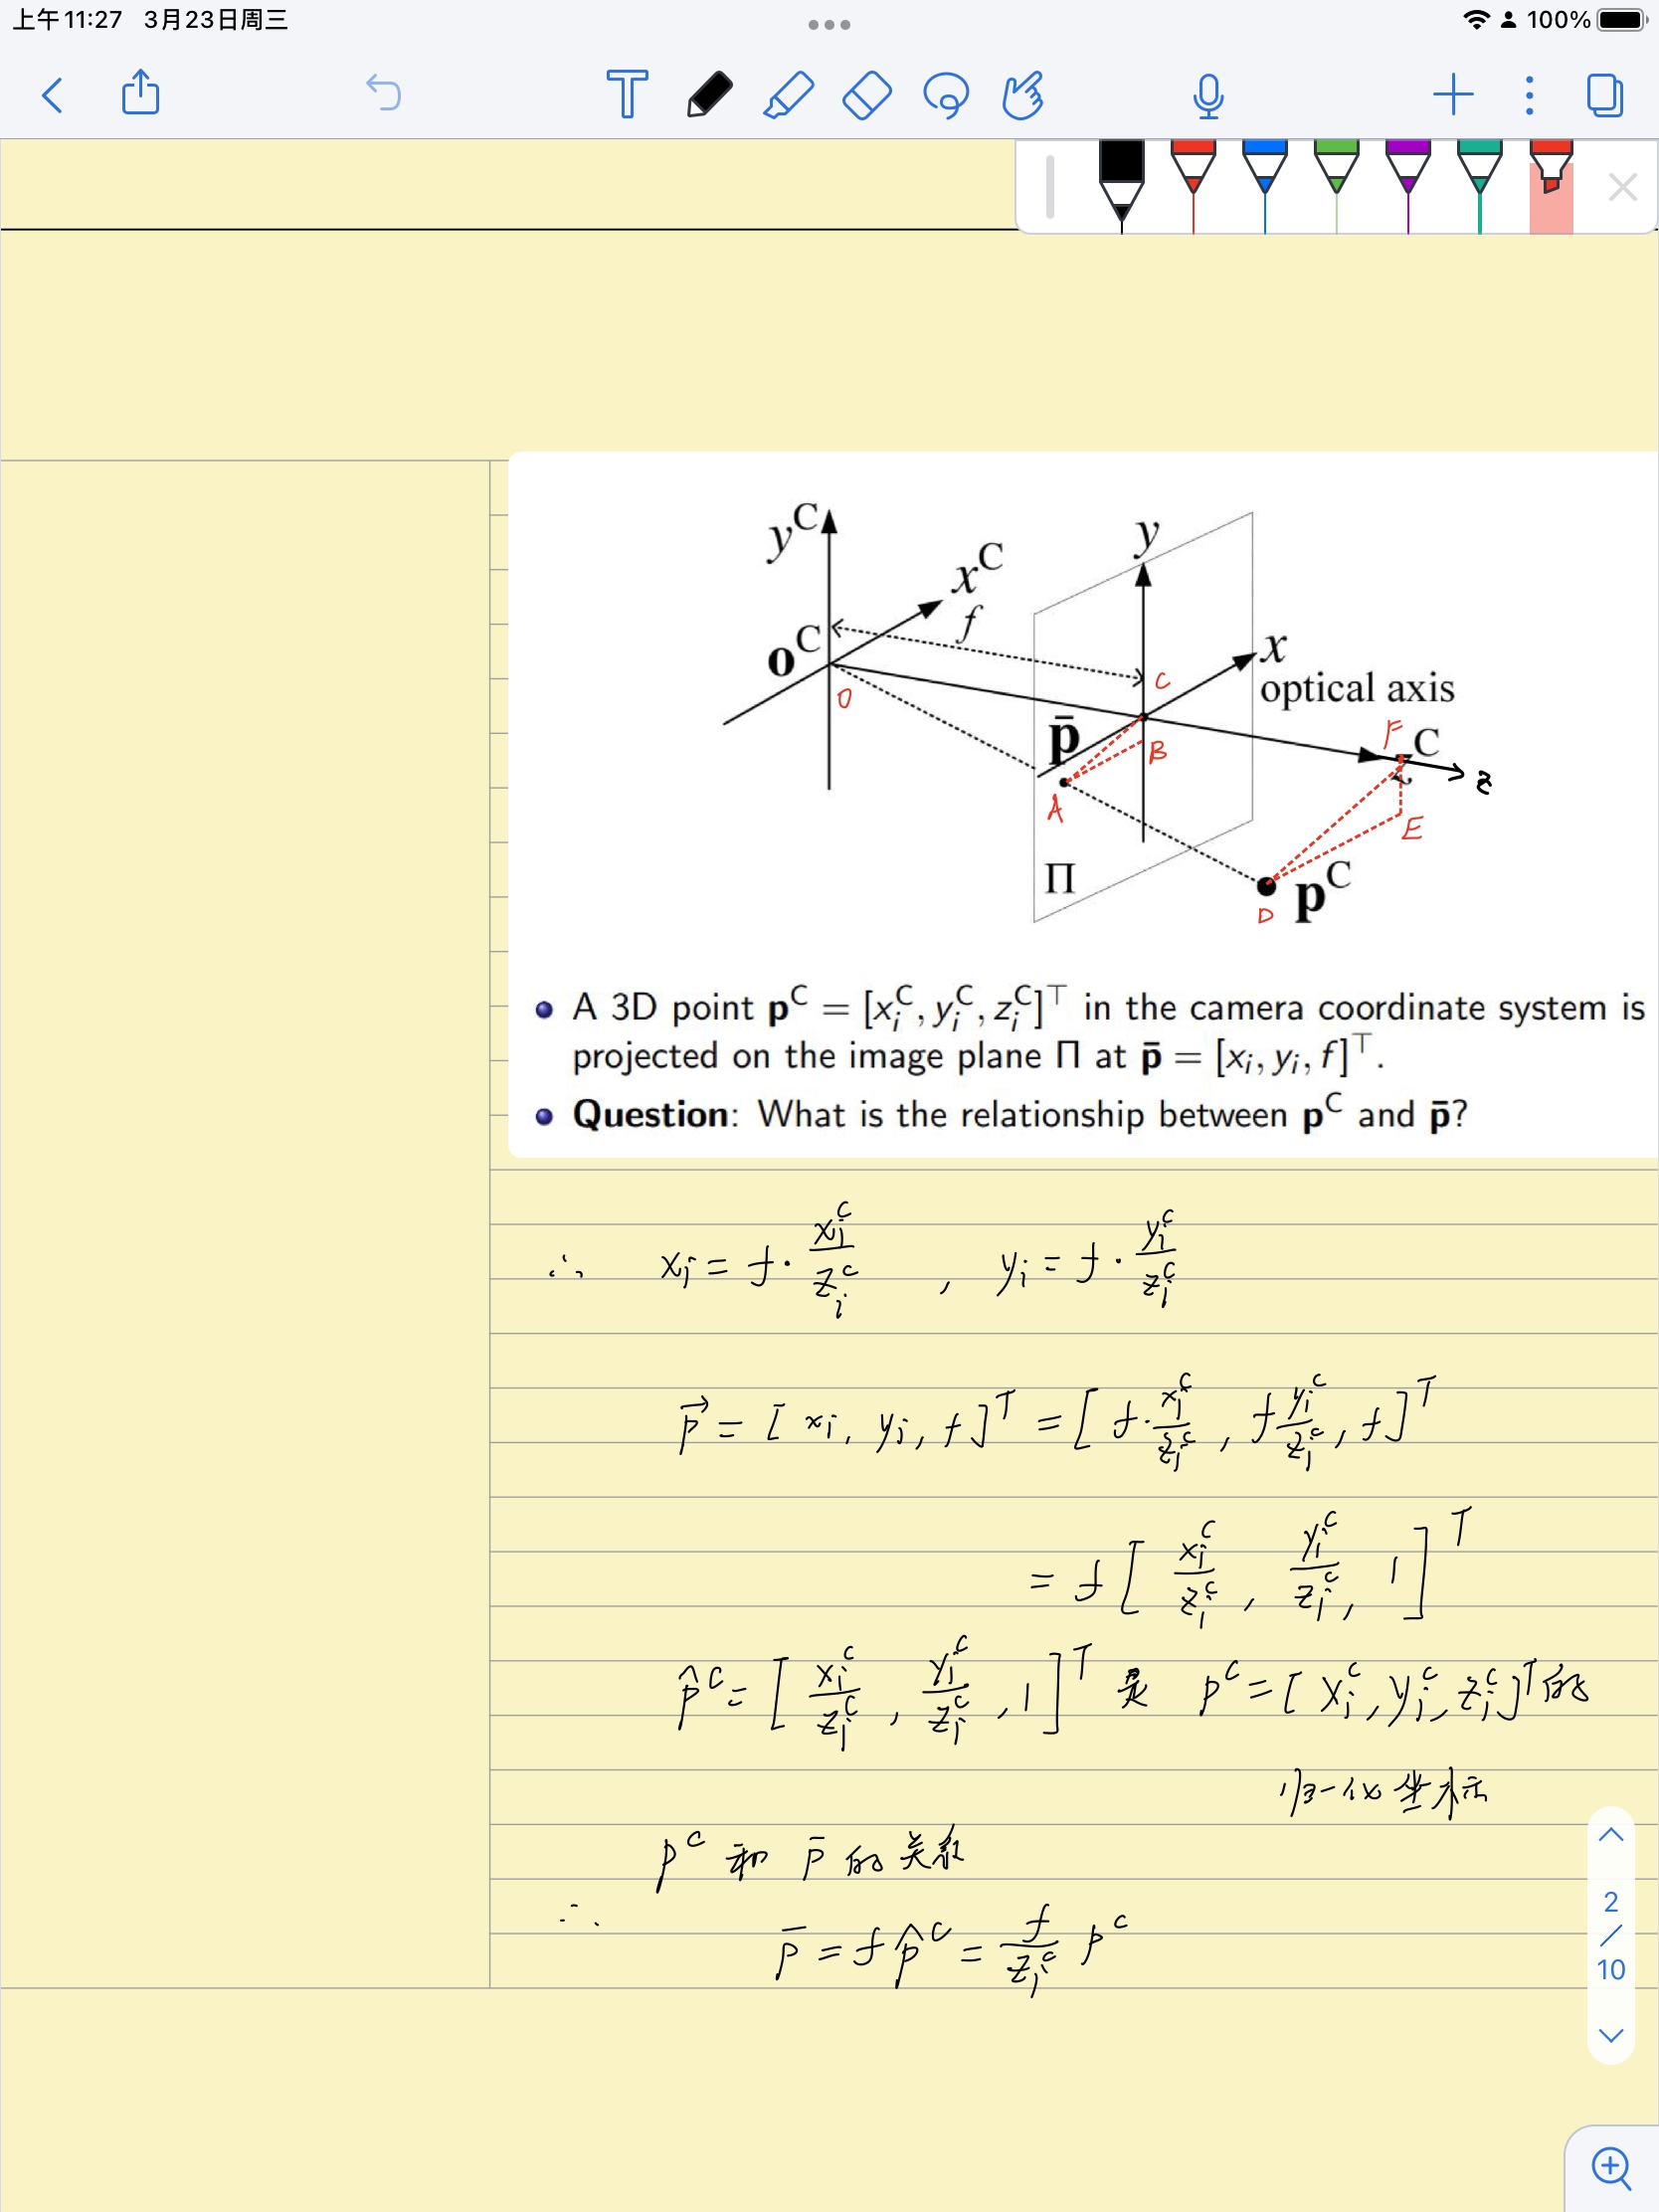 上午11:27 3月23日周三
100%
y^C
x^C
f
o^C
O
y
x
C
optical axis
p̄
B
F
C
z
A
E
Π
p^C
D
A 3D point p^C = [x_i^C, y_i^C, z_i^C]^⊤ in the camera coordinate system is
projected on the image plane Π at p̄ = [x_i, y_i, f]^⊤.
Question: What is the relationship between p^C and p̄?
∴ x_i = f · x_i^C / z_i^C , y_i = f · y_i^C / z_i^C
p⃗ = [x_i, y_i, f]^T = [f · x_i^C / z_i^C , f y_i^C / z_i^C , f]^T
= f [x_i^C / z_i^C , y_i^C / z_i^C , 1]^T
p̂^C = [x_i^C / z_i^C , y_i^C / z_i^C , 1]^T 是 p^C = [x_i^C, y_i^C, z_i^C]^T 的
归一化坐标
p^C 和 p̄ 的关系
∴ p̄ = f p̂^C = f / z_i^C p^C
2
/
10